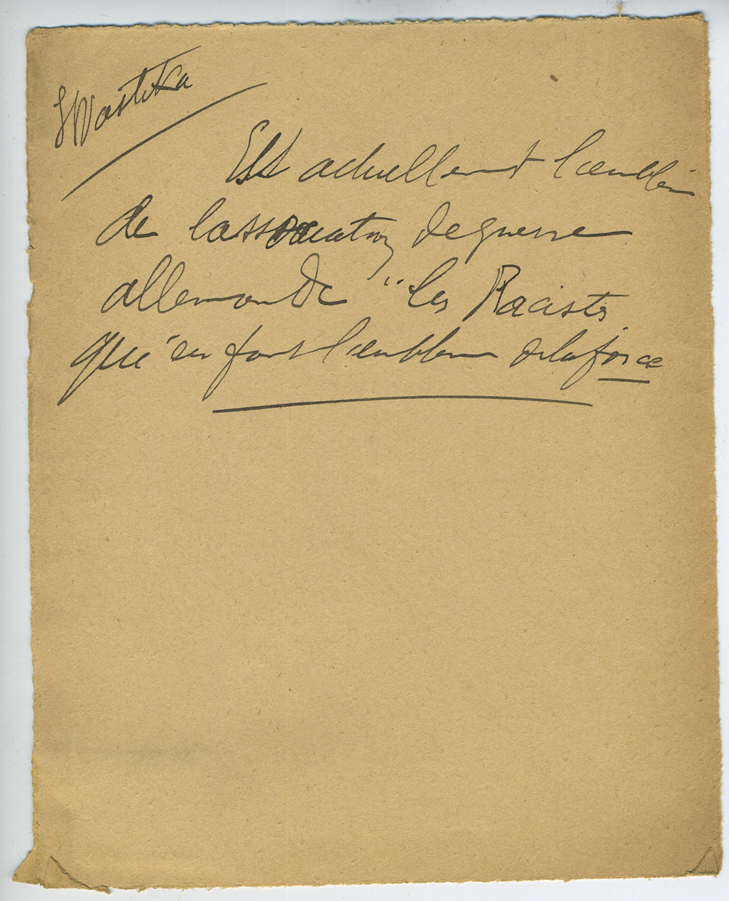 Swastika
Est actuellement l'emblème
de l'association de guerre
allemande "les Racistes
qui en font l'emblème de la force